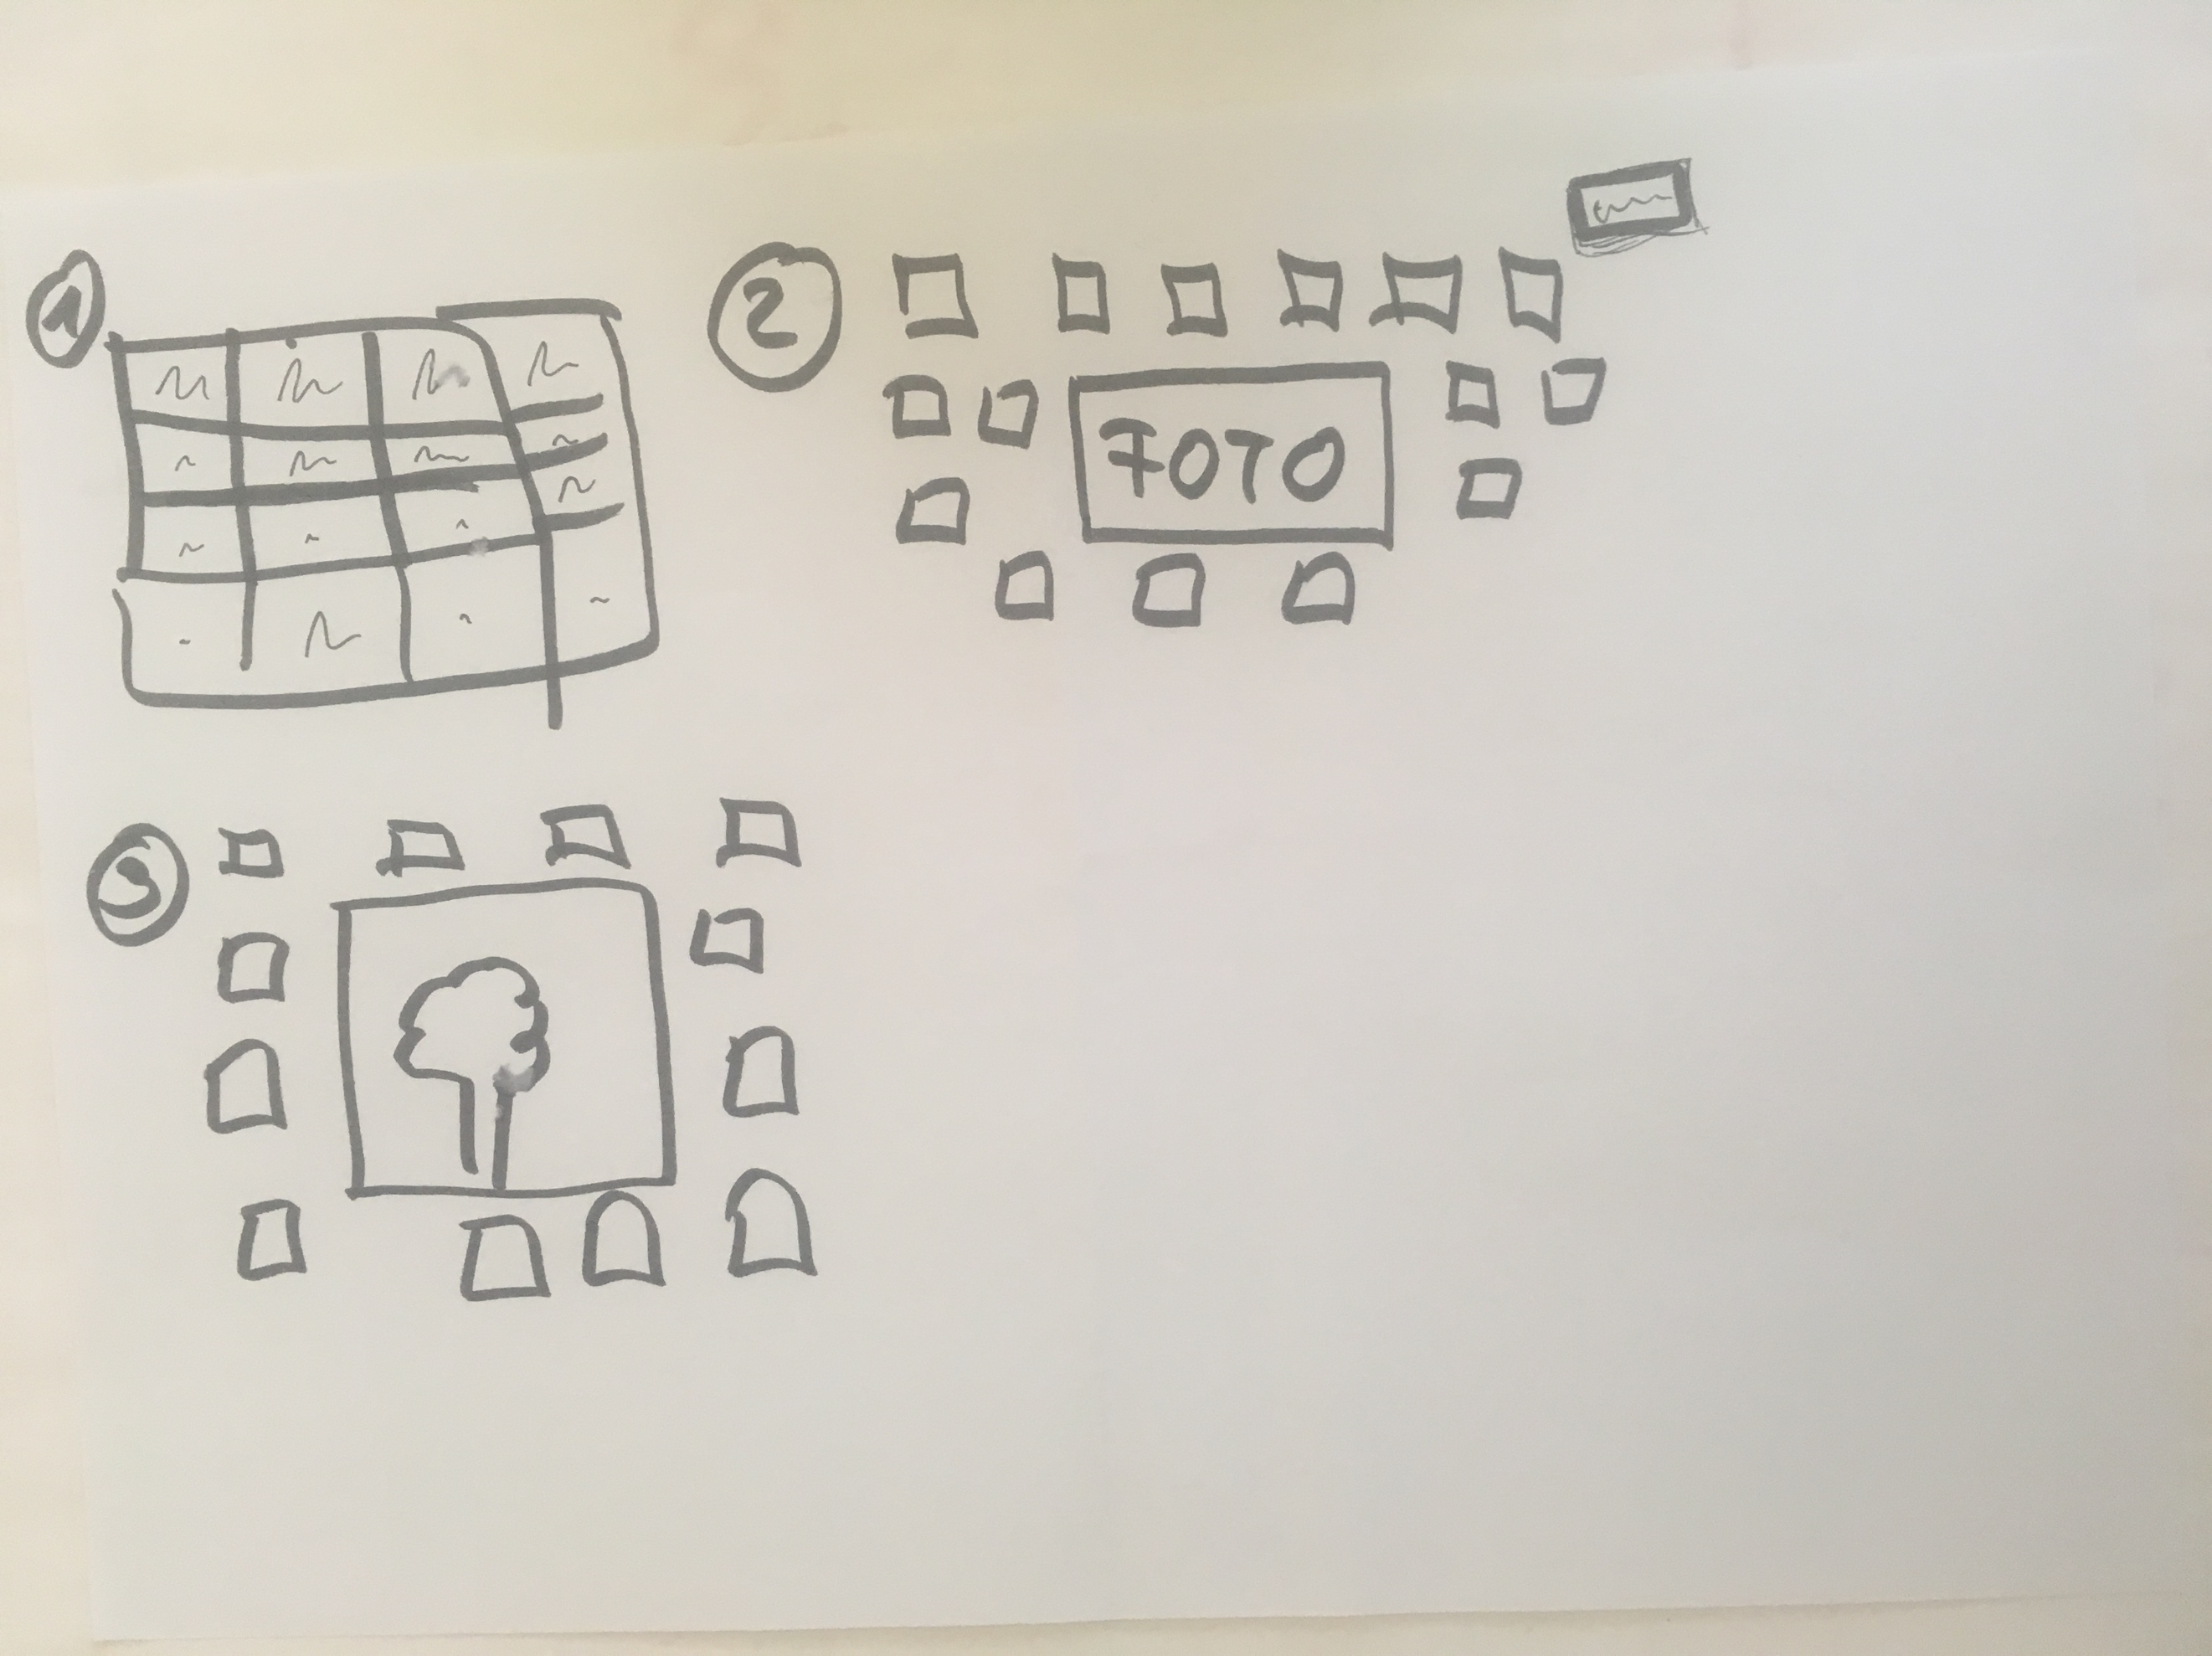 1
2
FOTO
3